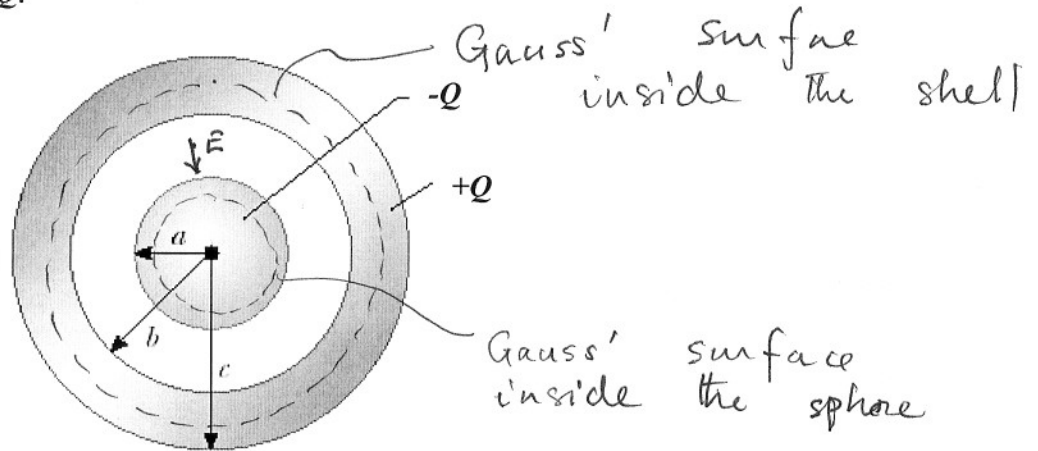 Gauss' surface
inside the shell
-Q
E
+Q
a
b
c
Gauss' surface
inside the sphere